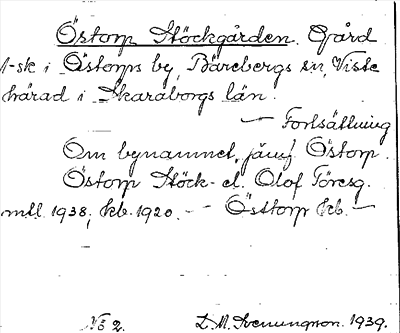 Östorp Stöckgården. Gård
1-sk i Östorps by, Bärebergs sn, Viste
härad i Skaraborgs län.
— Fortsättning
Om bynamnet, jämf Östorp.
Östorp Stöck- el. Olof Töresg.
mtl. 1938; kb. 1920. — Östtorp kb. —
No 2. L. M. Svenungson. 1939.